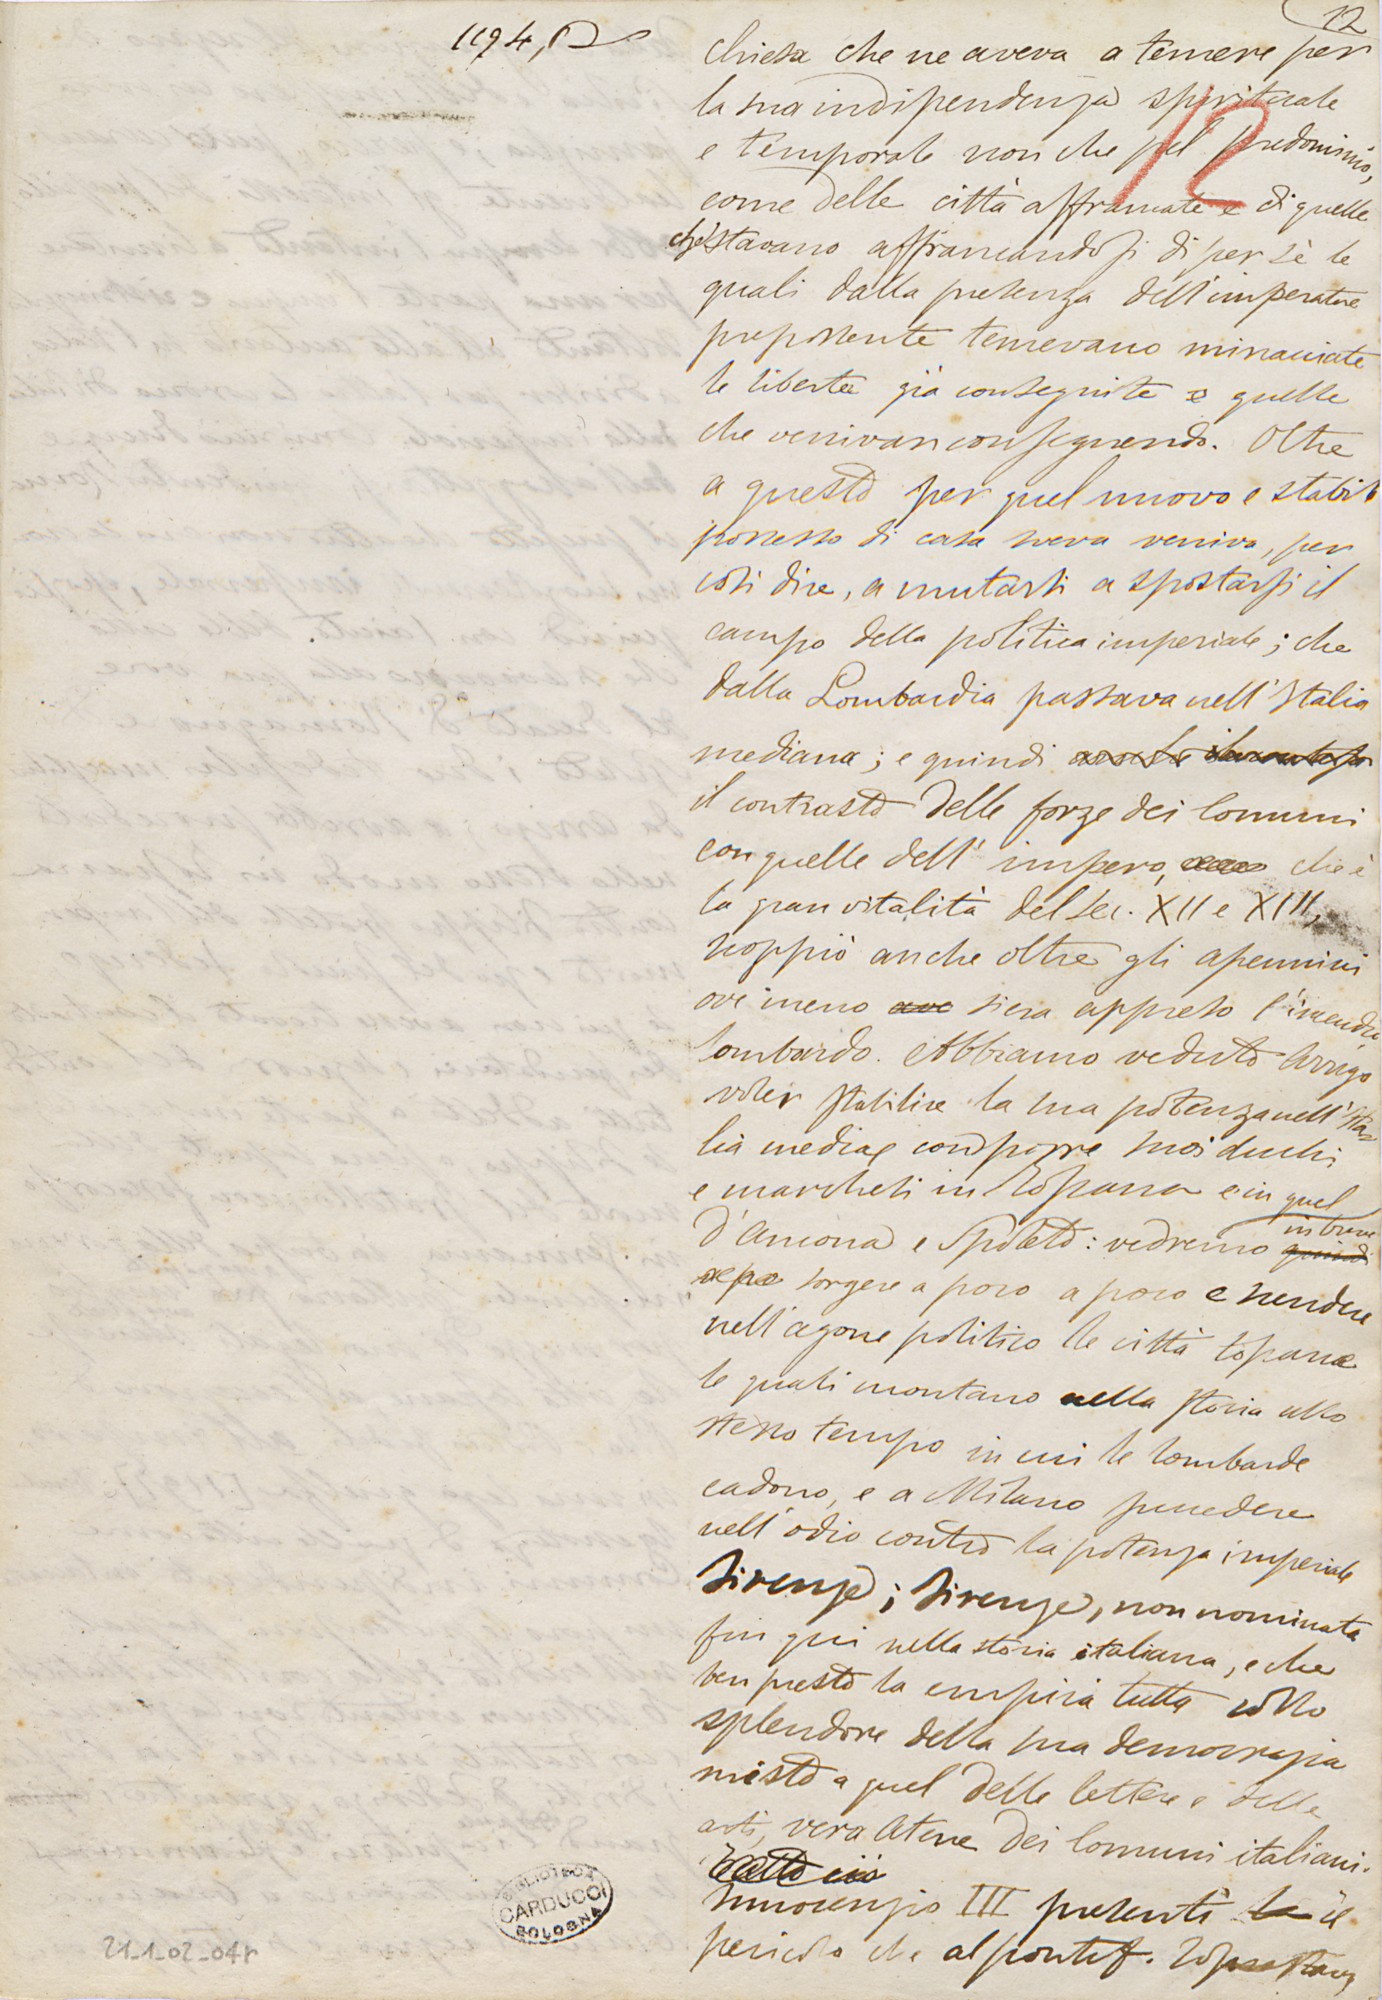 12
1194,
12
chiesa che ne aveva a temere per
la sua indipendenza spirituale
e temporale non che pel predominio,
come delle città affrancate e di quelle
che stavano affrancandosi di per sè le
quali dalla presenza dell'imperatore
prepossente temevano minacciate
le libertà già conseguite e quelle
che venivan conseguendo. Oltre
a questo per quel nuovo e stabile
possesso di casa sveva veniva, per
così dire, a mutarsi a spostarsi il
campo della politica imperiale; che
dalla Lombardia passava nell'Italia
mediana; e quindi
il contrasto delle forze dei Comuni
con quelle dell'impero, che è
la gran vitalità del sec. XII e XIII,
scoppiò anche oltre gli apennini
ove meno s'era appreso l'incendio
lombardo. Abbiamo veduto Arrigo
voler stabilire la sua potenza nell'Ita-
lia media e con porre suoi duchi
e marchesi in Toscana e in quel
d'Ancona e Spoleto: vedremo in breve
sorgere a poco a poco e scendere
nell'agone politico le città toscane
le quali montano nella storia allo
stesso tempo in cui le lombarde
cadono, e a Milano succedere
nell'odio contro la potenza imperiale
Firenze; Firenze, non nominata
fin qui nella storia italiana, e che
ben presto la empirà tutta collo
splendore della sua democrazia
misto a quel delle lettere e delle
arti, vera Atene dei Comuni italiani.
Innocenzio III presentì il
pericolo che al pontef.
BIBLIOTECA
CARDUCCI
BOLOGNA
21_1_02_04r